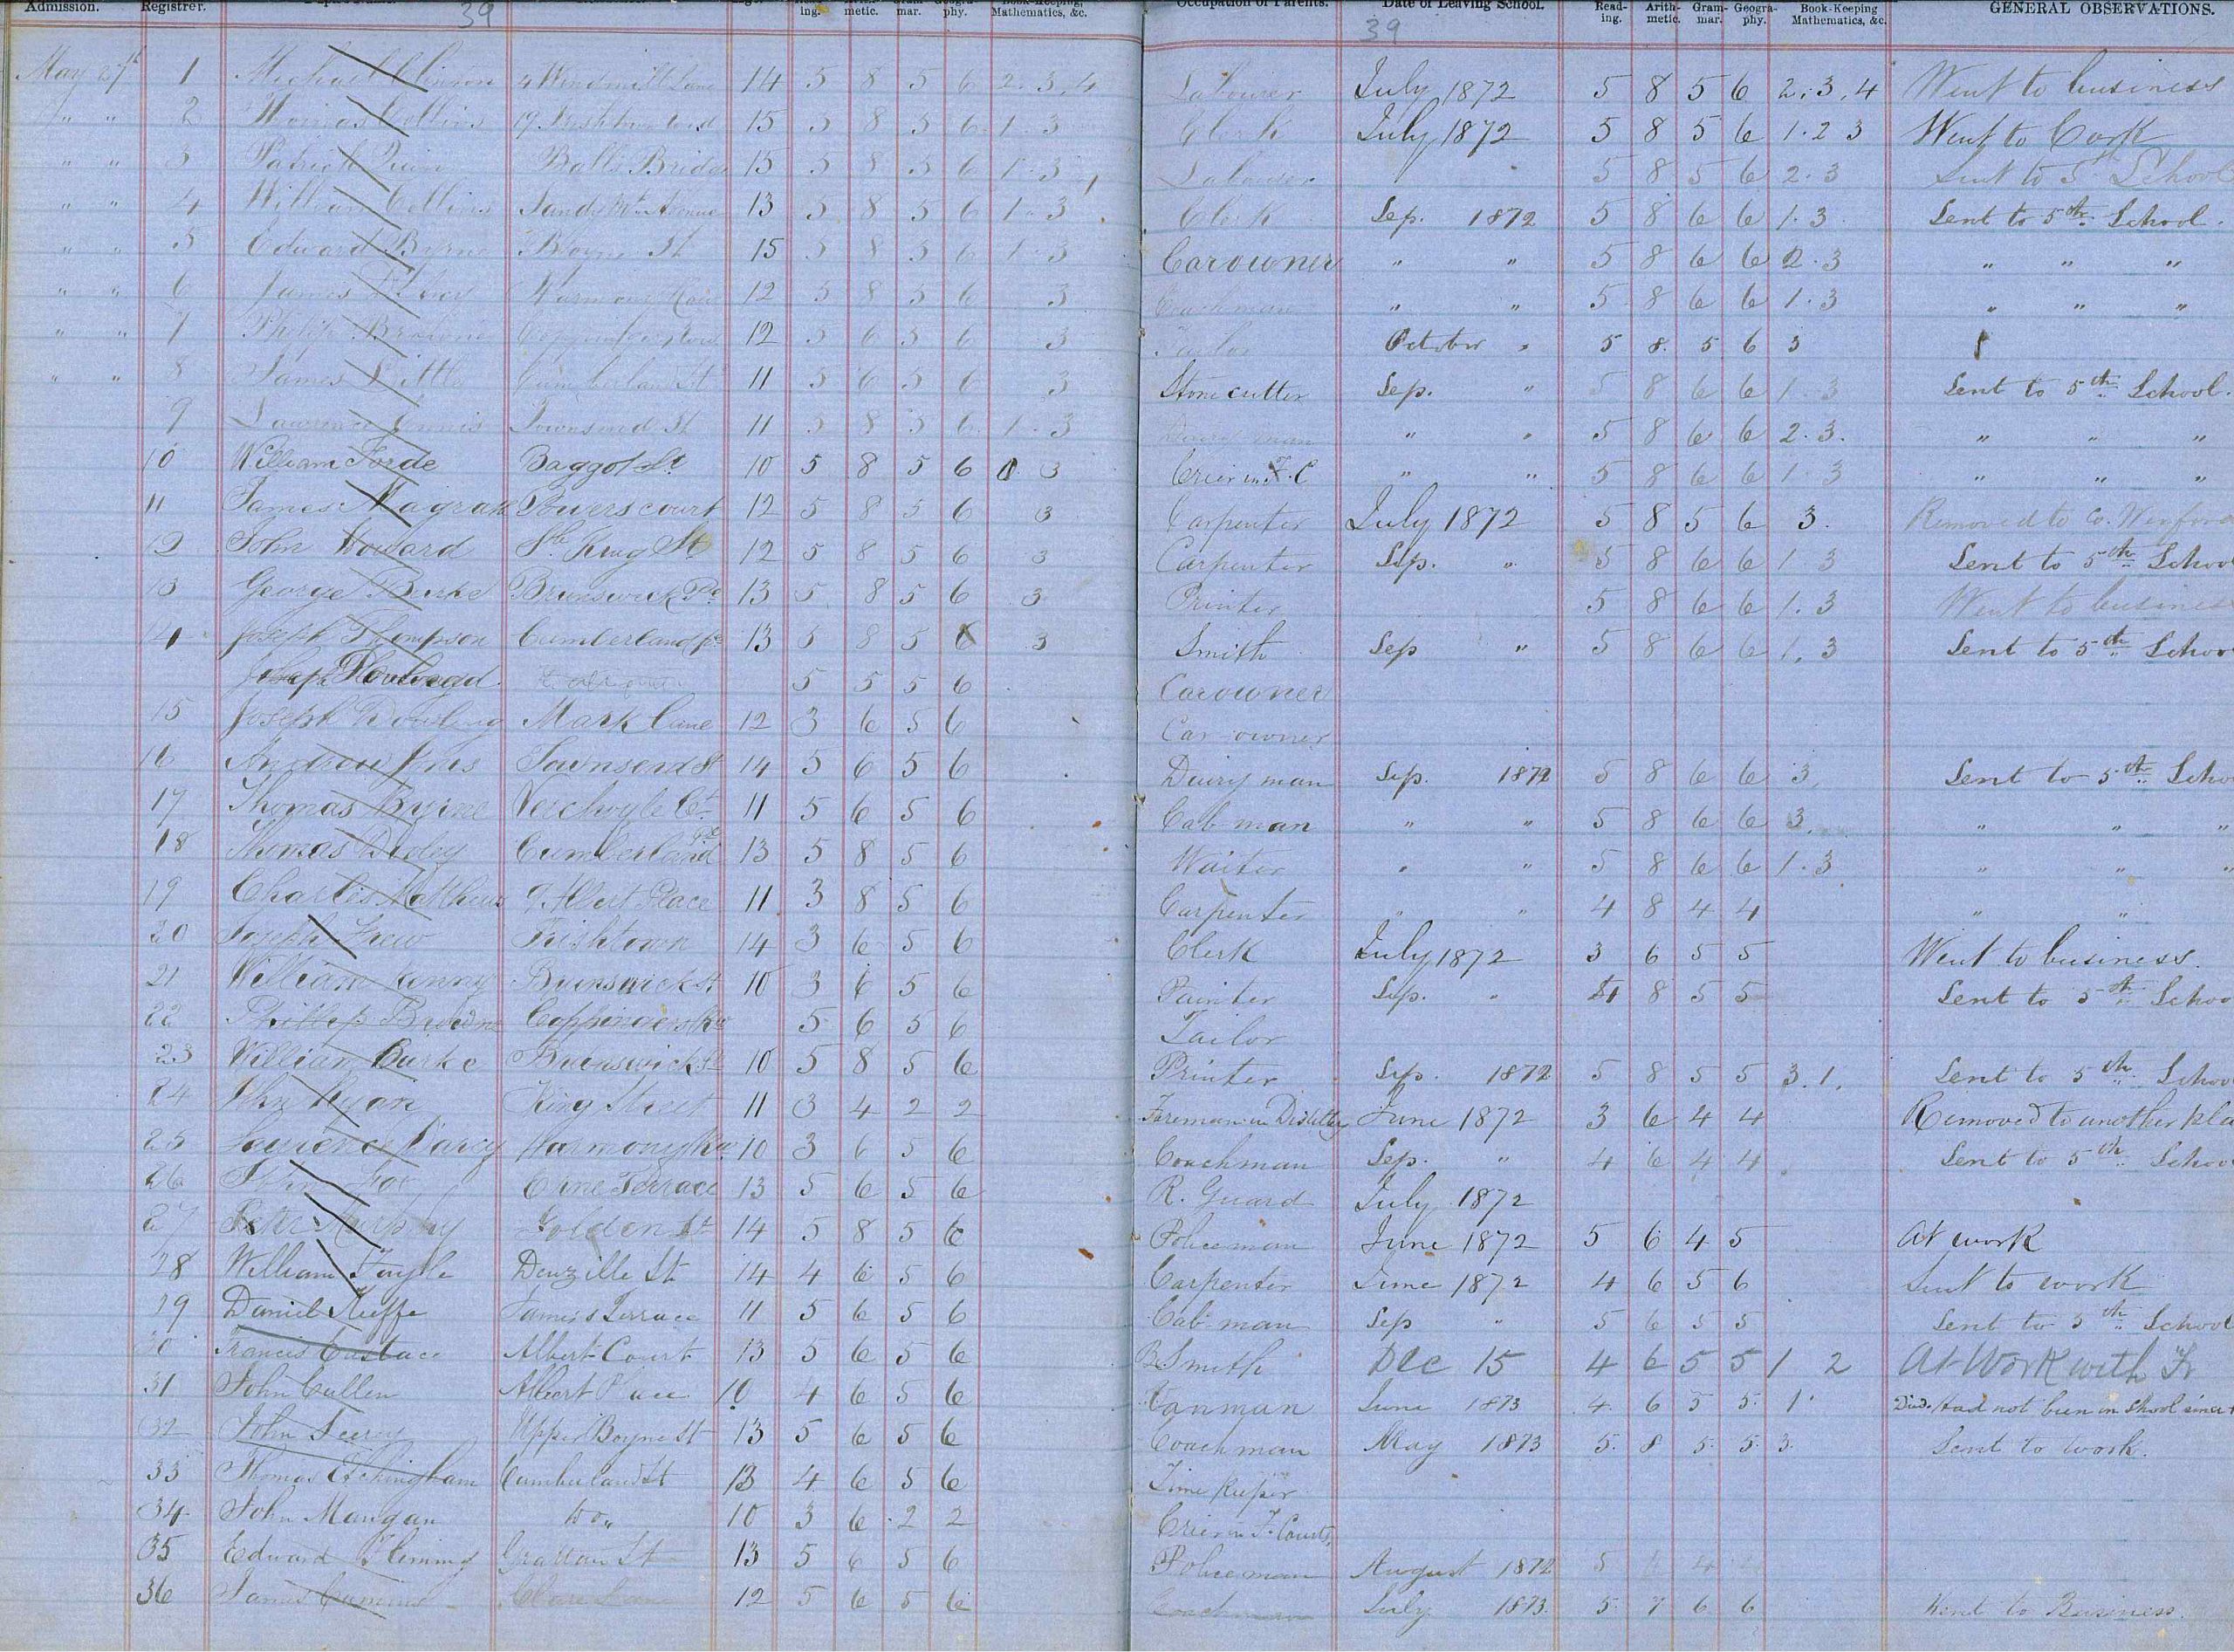 Admission. Registrer. 39 ing. metic. mar. phy. Mathematics, &c. Occupation of Parents. Date of Leaving School. 39 Read-ing. Arith-metic. Gram-mar. Geogra-phy. Book-Keeping Mathematics, &c. GENERAL OBSERVATIONS.
May 27th 1 Michael 4 Windmill Lane 14 5 8 5 6 2. 3. 4 Labourer July 1872 5 8 5 6 2. 3. 4 Went to business
" " 2 Thomas Collins 15 5 8 5 6 1. 3 Clerk July 1872 5 8 5 6 1. 2 3 Went to Cork
" " 3 Patrick Quinn Balls Bridge 15 5 8 5 6 1. 3 Labourer 5 8 5 6 2. 3 Sent to 5th School
" " 4 William Collins Sandymt. Avenue 13 5 8 5 6 1. 3 Clerk Sep. 1872 5 8 6 6 1. 3 Sent to 5th School.
" " 5 Edward Byrne Boyne St 15 5 8 5 6 1. 3 Carowner " " 5 8 6 6 2. 3 " " "
" " 6 James Harmony Row 12 5 8 5 6 3 Coachman " " 5 8 6 6 1. 3 " " "
" " 7 Philip Browne Coppinger Row 12 5 6 5 6 3 Tailor October " 5 8 5 6 3
" " 8 James Little Cumberland St 11 5 6 5 6 3 Stone cutter Sep. " 5 8 6 6 1. 3 Sent to 5th School.
9 Lawrence Townsend St 11 5 8 5 6 1. 3 Dairy man " " 5 8 6 6 2. 3. " " "
10 William Forde Baggot St 10 5 8 5 6 1 3 Crier in F. C " " 5 8 6 6 1. 3 " " "
11 James Magrath Powerscourt 12 5 8 5 6 3 Carpenter July 1872 5 8 5 6 3. Removed to Co. Wexford
12 John Howard Sth King St 12 5 8 5 6 3 Carpenter Sep. " 5 8 6 6 1. 3 Sent to 5th School
13 George Burke Brunswick Pl 13 5 8 5 6 3 Printer 5 8 6 6 1. 3 Went to business
14 Joseph Thompson Cumberland pl 13 5 8 5 6 3 Smith Sep " 5 8 6 6 1. 3 Sent to 5th School
Joseph 5 5 5 6 Carowner
15 Joseph Dowling Mark Lane 12 3 6 5 6 Car owner
16 Andrew Townsend St 14 5 6 5 6 Dairy man Sep. 1872 5 8 6 6 3. Sent to 5th Scho
17 Thomas Byrne Verchoyle Ct 11 5 6 5 6 Cab man " " 5 8 6 6 3. " " "
18 Thomas Cumberland 13 5 8 5 6 Waiter " " 5 8 6 6 1. 3 " " "
19 Charles Mathews 9 Albert Place 11 3 8 5 6 Carpenter " " 4 8 4 4 " "
20 Joseph Irishtown 14 3 6 5 6 Clerk July 1872 3 6 5 5 Went to business.
21 William Kenny Brunswick St 10 3 6 5 6 Painter Sep. " 4 8 5 5 Sent to 5th Schoo
22 Phillip Browne Coppingers Row 5 6 5 6 Tailor
23 William Burke Brunswick St 10 5 8 5 6 Printer Sep. 1872 5 8 5 5 3. 1. Sent to 5th Schoo
24 John Ryan King Street 11 3 4 2 2 Foreman in Distillery June 1872 3 6 4 4 Removed to another pla
25 Lawrence Darcy Harmony Row 10 3 6 5 6 Coachman Sep. " 4 6 4 4 Sent to 5th Schoo
26 John Fox Erne Terrace 13 5 6 5 6 R. Guard July 1872
27 Peter Murphy Golden St 14 5 8 5 6 Policeman June 1872 5 6 4 5 At work
28 William Denzille St 14 4 6 5 6 Carpenter June 1872 4 6 5 6 Sent to work
29 Daniel Keeffe James Terrace 11 5 6 5 6 Cab man Sep " 5 6 5 5 Sent to 5th School
30 Francis Eustace Albert Court 13 5 6 5 6 B. Smith Dec 15 4 6 5 5 1 2 At Work with Fr
31 John Cullen Albert Place 10 4 6 5 6 Vanman June 1873 4 6 5 5 1 Died. Had not been in School since
32 John Seery Upper Boyne St 13 5 6 5 6 Coachman May 1873 5. 8 5. 5. 3. Sent to work.
33 Thomas Etchingham Cumberland St 13 4 6 5 6 Time Keeper
34 John Mangan Do " 10 3 6 2 2 Crier in F. Courts.
35 Edward Flemming Grattan St 13 5 6 5 6 Policeman August 1872 5 6 4
36 James Cummins Clare Lane 12 5 6 5 6 Coachman July 1873. 5 7 6 6 Went to Business.